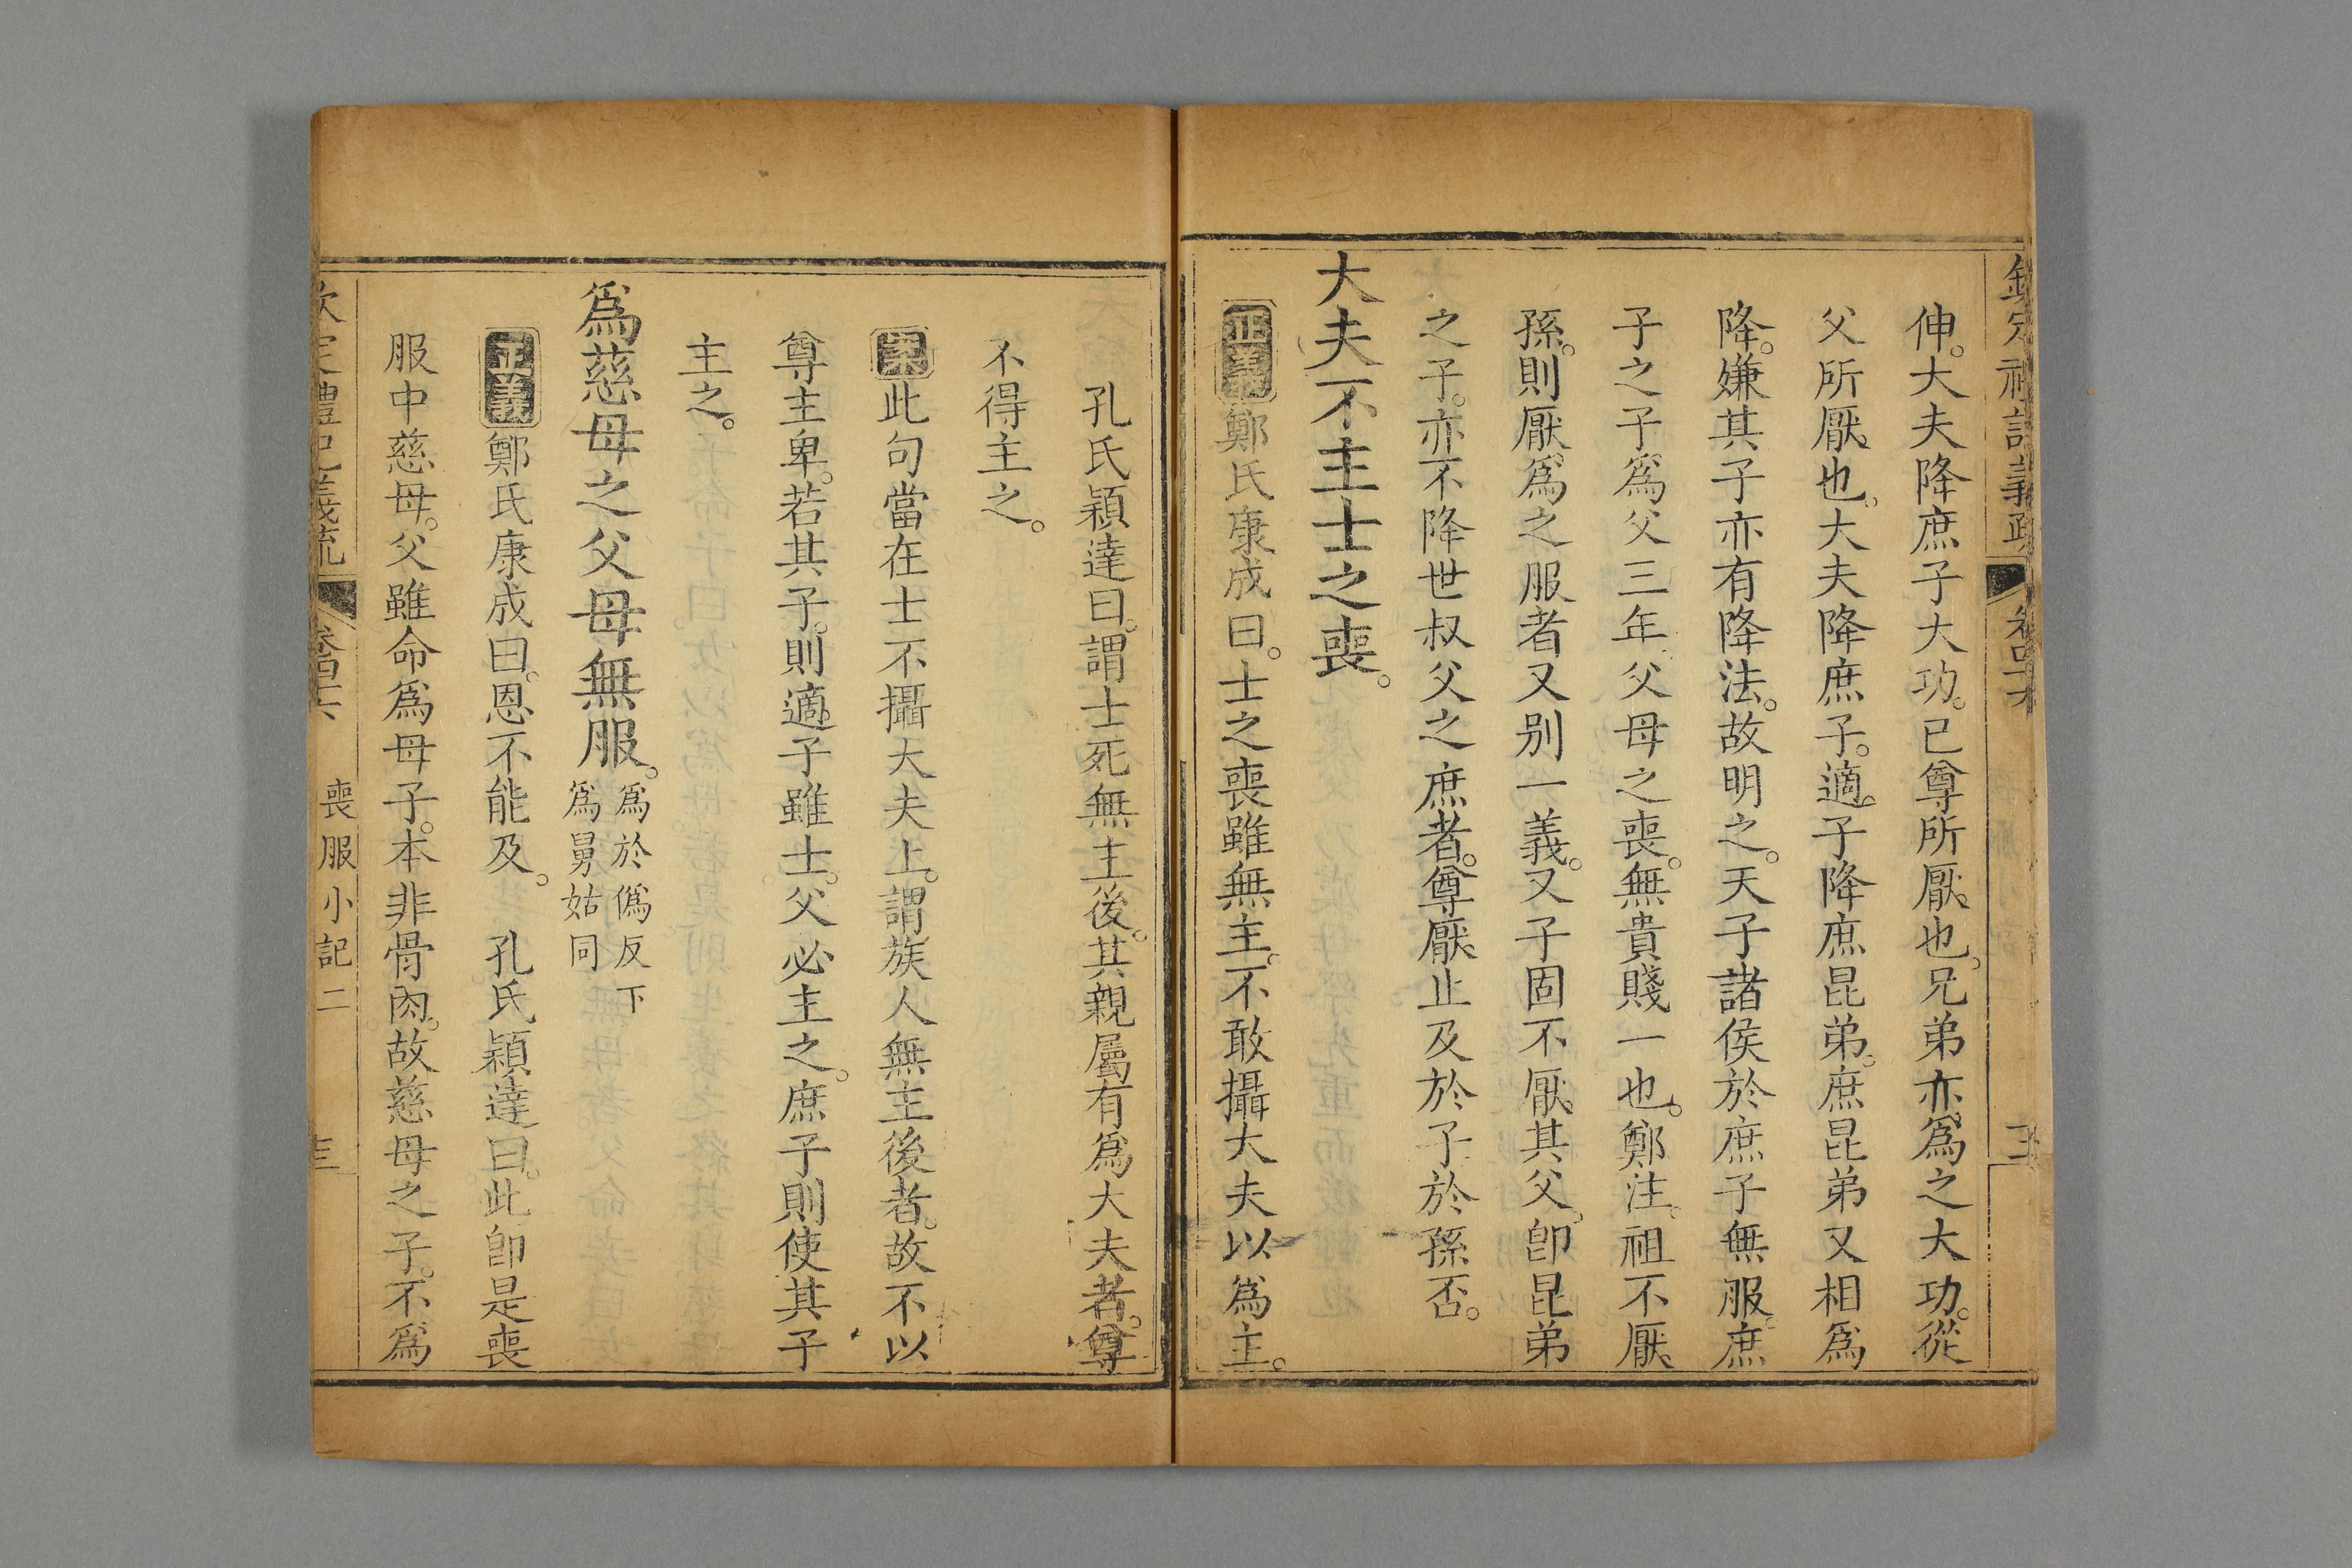 欽定禮記義疏 卷四十六
伸。大夫降庶子大功。已尊所厭也。兄弟亦爲之大功。從
父所厭也。大夫降庶子。適子降庶昆弟。庶昆弟又相爲
降。嫌其子亦有降法。故明之。天子諸侯於庶子無服。庶
子之子爲父三年。父母之喪。無貴賤一也。鄭注。祖不厭
孫。則厭爲之服者又别一義。又子固不厭其父。卽昆弟
之子。亦不降世叔父之庶者。尊厭止及於子於孫否。
大夫不主士之喪。
正義鄭氏康成曰。士之喪雖無主。不敢攝大夫以爲主。
孔氏穎達曰。謂士死無主後。其親屬有爲大夫者。尊
不得主之。
案此句當在士不攝大夫上。謂族人無主後者。故不以
尊主卑。若其子。則適子雖士。父必主之。庶子則使其子
主之。
爲慈母之父母無服。爲於僞反下
爲舅姑同
正義鄭氏康成曰。恩不能及。 孔氏穎達曰。此卽是喪
服中慈母。父雖命爲母子。本非骨肉。故慈母之子。不爲
欽定禮記義疏 卷四十六 喪服小記二